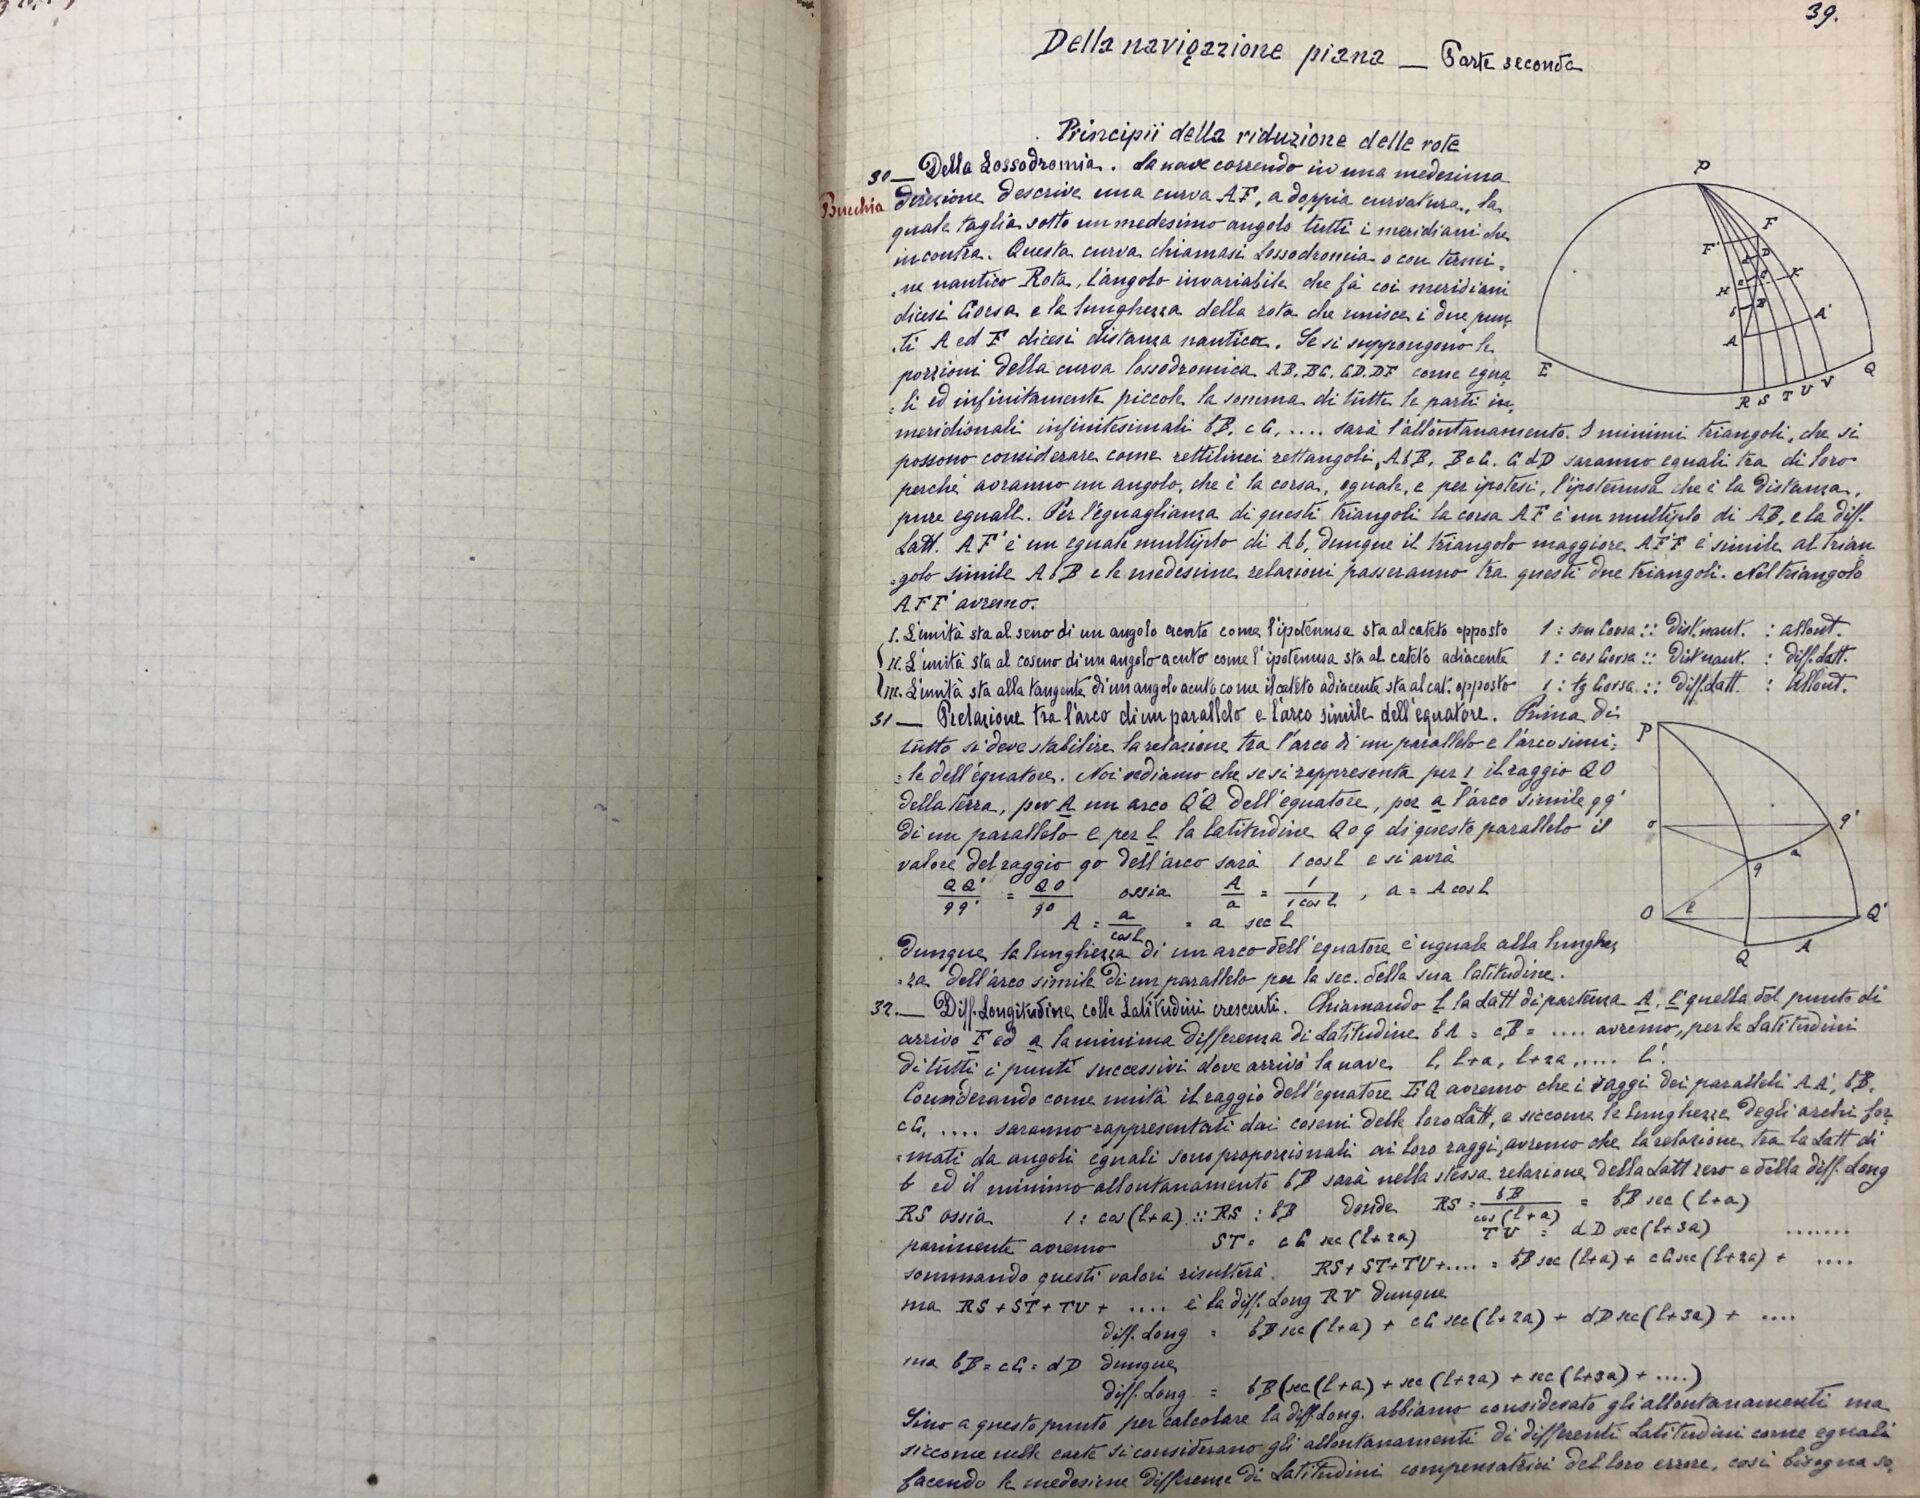 39.
Della navigazione piana — Parte seconda
Principii della riduzione delle rote
30 — Della Lossodromia. La nave correndo in una medesima
direzione descrive una curva AF, a doppia curvatura, la
quale taglia sotto un medesimo angolo tutti i meridiani che
incontra. Questa curva chiamasi Lossodromia o con termi=
=ne nautico Rota, l'angolo invariabile che fa coi meridiani
dicesi Corsa e la lunghezza della rota che unisce i due pun=
=ti A ed F dicesi distanza nautica. Se si suppongono le
porzioni della curva lossodromica AB. BC. CD. DF come egua=
=li ed infinitamente piccole la somma di tutte le parti in=
meridionali infinitesimali bB, cC, .... sarà l'allontanamento. I minimi triangoli, che si
possono considerare come rettilinei rettangoli, AbB. BcC. CdD saranno eguali tra di loro
perché avranno un angolo, che è la corsa, eguale, e per ipotesi, l'ipotenusa che è la distanza,
pure eguale. Per l'eguaglianza di questi triangoli la corsa AF è un multiplo di AB, e la diff.
Latt. AF' è un eguale multiplo di Ab, dunque il triangolo maggiore AF'F è simile al trian
=golo simile AbB e le medesime relazioni passeranno tra questi due triangoli. Nel triangolo
AFF' avremo.
I. L'unità sta al seno di un angolo acuto come l'ipotenusa sta al cateto opposto 1 : sen Corsa :: Dist. naut. : allont.
II. L'unità sta al coseno di un angolo acuto come l'ipotenusa sta al cateto adiacente 1 : cos Corsa :: Dist naut. : diff. Latt.
III. L'unità sta alla tangente di un angolo acuto come il cateto adiacente sta al cat. opposto 1 : tg Corsa :: Diff. Latt. : Allont.
31 — Relazione tra l'arco di un parallelo e l'arco simile dell'equatore. Prima di
tutto si deve stabilire la relazione tra l'arco di un parallelo e l'arco simi=
=le dell'equatore. Noi vediamo che se si rappresenta per 1 il raggio QO
della terra, per A un arco Q'Q dell'equatore, per a l'arco simile qq'
di un parallelo e per l la latitudine QOq di questo parallelo il
valore del raggio qo dell'arco sarà 1 cos l e si avrà
QQ'/qq' = QO/qo ossia A/a = 1/1 cos l , a = A cos l
A = a/cos l = a sec l
Dunque la lunghezza di un arco dell'equatore è uguale alla lunghez
=za dell'arco simile di un parallelo per la sec. della sua latitudine.
32. — Diff. Longitudine colle Latitudini crescenti. Chiamando l la Latt di partenza A, l' quella del punto di
arrivo F ed a la minima differenza di Latitudine bA = cB = .... avremo, per le Latitudini
di tutti i punti successivi dove arrivò la nave l, l+a, l+2a, .... l'.
Considerando come unità il raggio dell'equatore EQ avremo che i raggi dei paralleli AA', bB,
cC, .... saranno rappresentati dai coseni delle loro Latt, e siccome le lunghezze degli archi for=
=mati da angoli eguali sono proporzionali ai loro raggi, avremo che la relazione tra la Latt di
b ed il minimo allontanamento bB sarà nella stessa relazione della Latt zero e della diff. Long
RS ossia 1 : cos (l+a) :: RS : bB donde RS = bB/cos (l+a) = bB sec (l+a)
parimente avremo ST = cC sec (l+2a) TV = dD sec (l+3a) .......
sommando questi valori risulterà RS + ST + TV + .... = bB sec (l+a) + cC sec (l+2a) + ....
ma RS + ST + TV + .... è la diff. Long RV dunque
diff. Long = bB sec (l+a) + cC sec (l+2a) + dD sec (l+3a) + ....
ma bB = cC = dD dunque
diff. Long = bB (sec (l+a) + sec (l+2a) + sec (l+3a) + ....)
Sino a questo punto per calcolare la diff. Long. abbiamo considerato gli allontanamenti ma
siccome nelle carte si considerano gli allontanamenti di differenti Latitudini come eguali
facendo le medesime differenze di Latitudini compensatrici del loro errore, così bisogna so=
P
F
F'
D
K
H
c
B
b
A
A'
E
Q
R S T U V
P
o
q'
a
q
O
l
Q'
Q
A